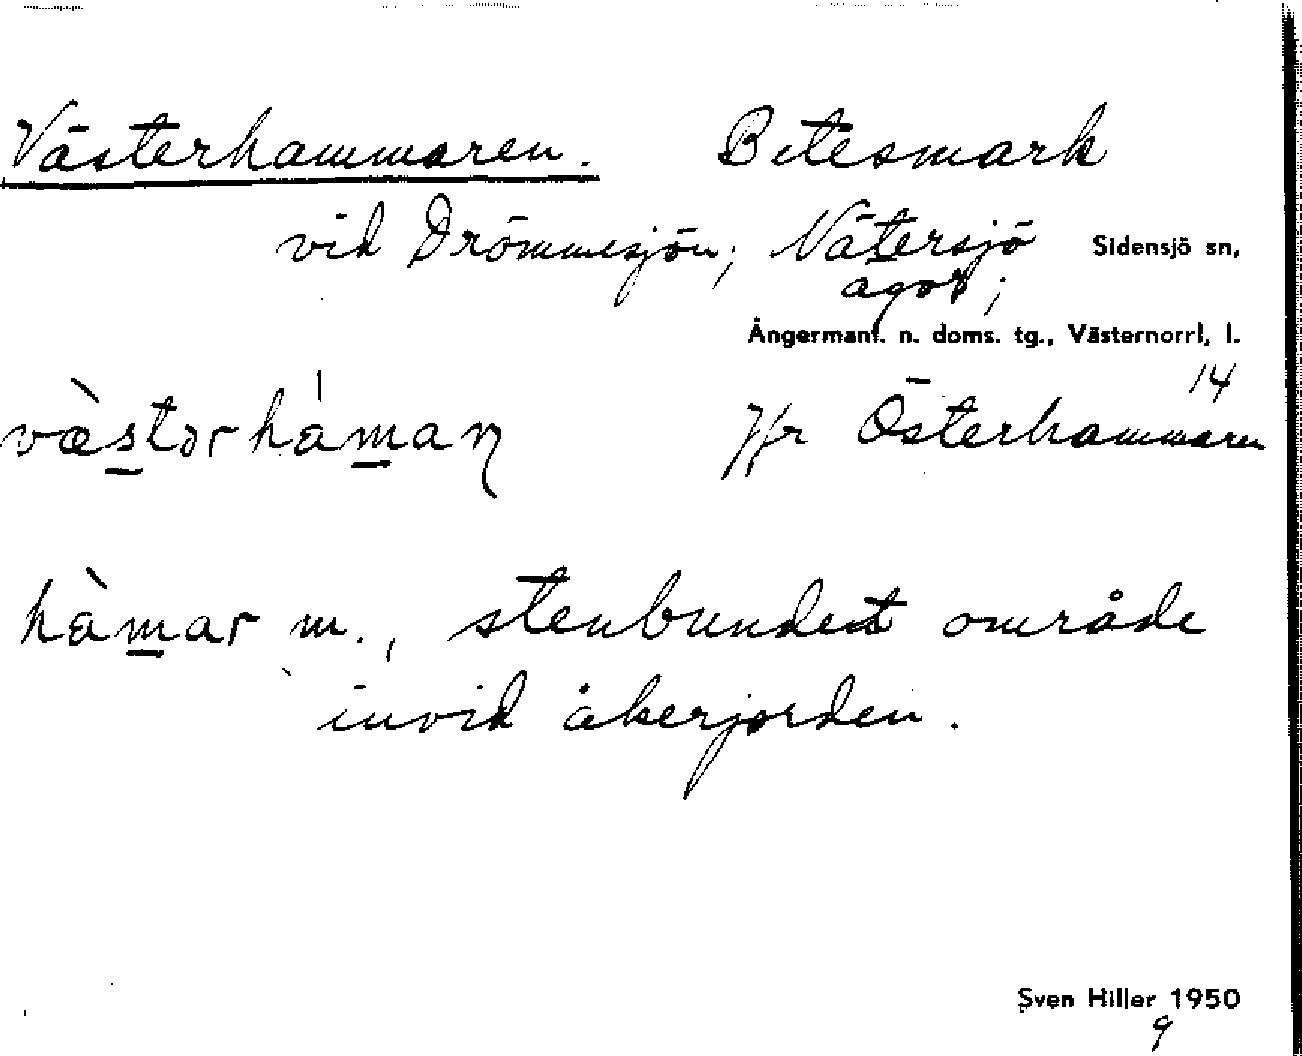 Västerhammaren. Betesmark
vid Drömmesjön; Nätersjö Sidensjö sn,
ägor;
Ångermanl. n. doms. tg., Västernorrl, l.
14
væ̀stər hámaɳ Jfr Österhammaren
hàmar m., stenbundet område
invid åkerjorden.
Sven Hiller 1950
9